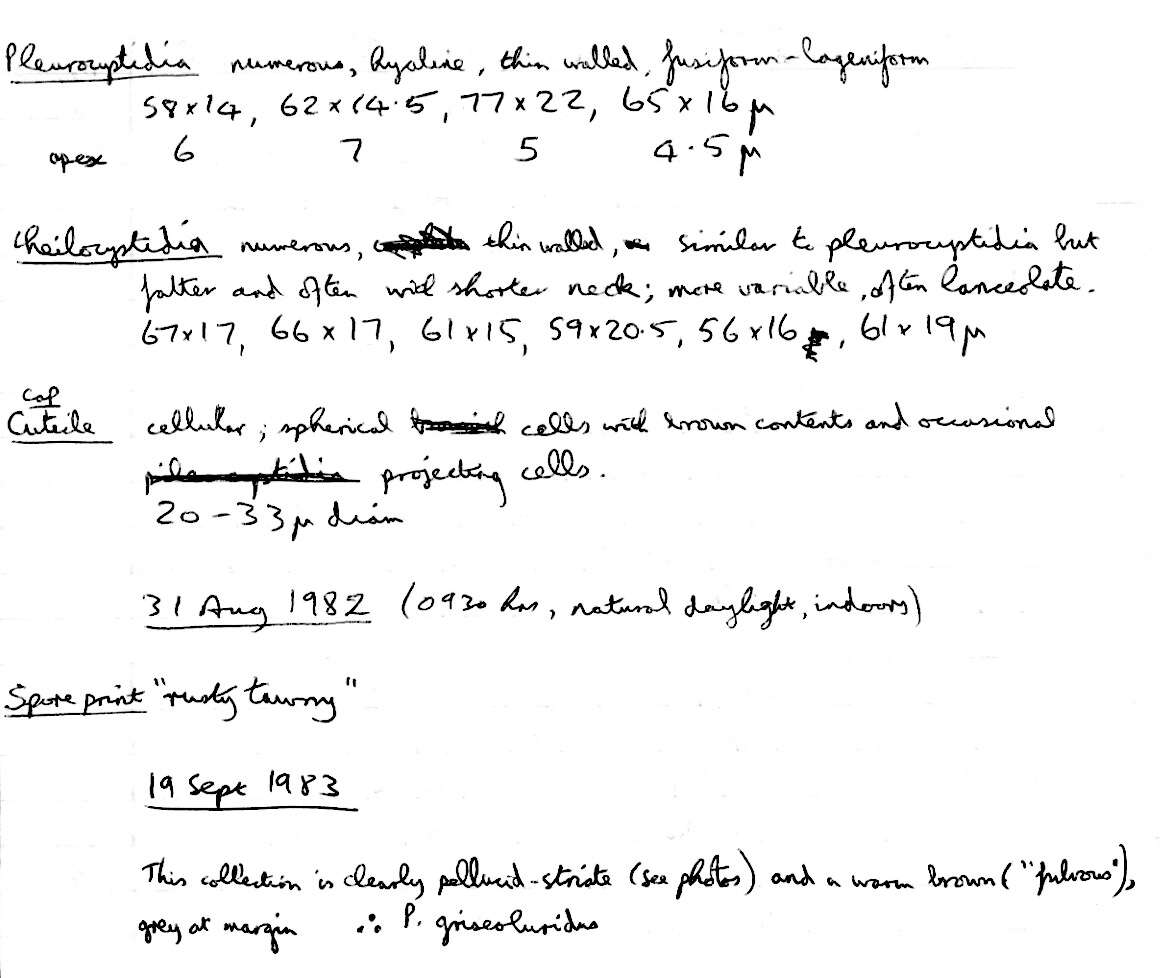 Pleurocystidia numerous, hyaline, thin walled, fusiform-lageniform
58x14, 62x14.5, 77x22, 65x16 µ
apex 6 7 5 4.5 µ
Cheilocystidia numerous, thin walled, similar to pleurocystidia but
fatter and often with shorter neck; more variable, often lanceolate.
67x17, 66x17, 61x15, 59x20.5, 56x16, 61x19µ
Cap
Cuticle cellular; spherical cells with brown contents and occasional
projecting cells.
20-33µ diam
31 Aug 1982 (0930 hrs, natural daylight, indoors)
Spore print "rusty tawny"
19 Sept 1983
This collection is clearly pellucid-striate (see photos) and a warm brown ("fulvous"),
grey at margin ∴ P. griseoluridus